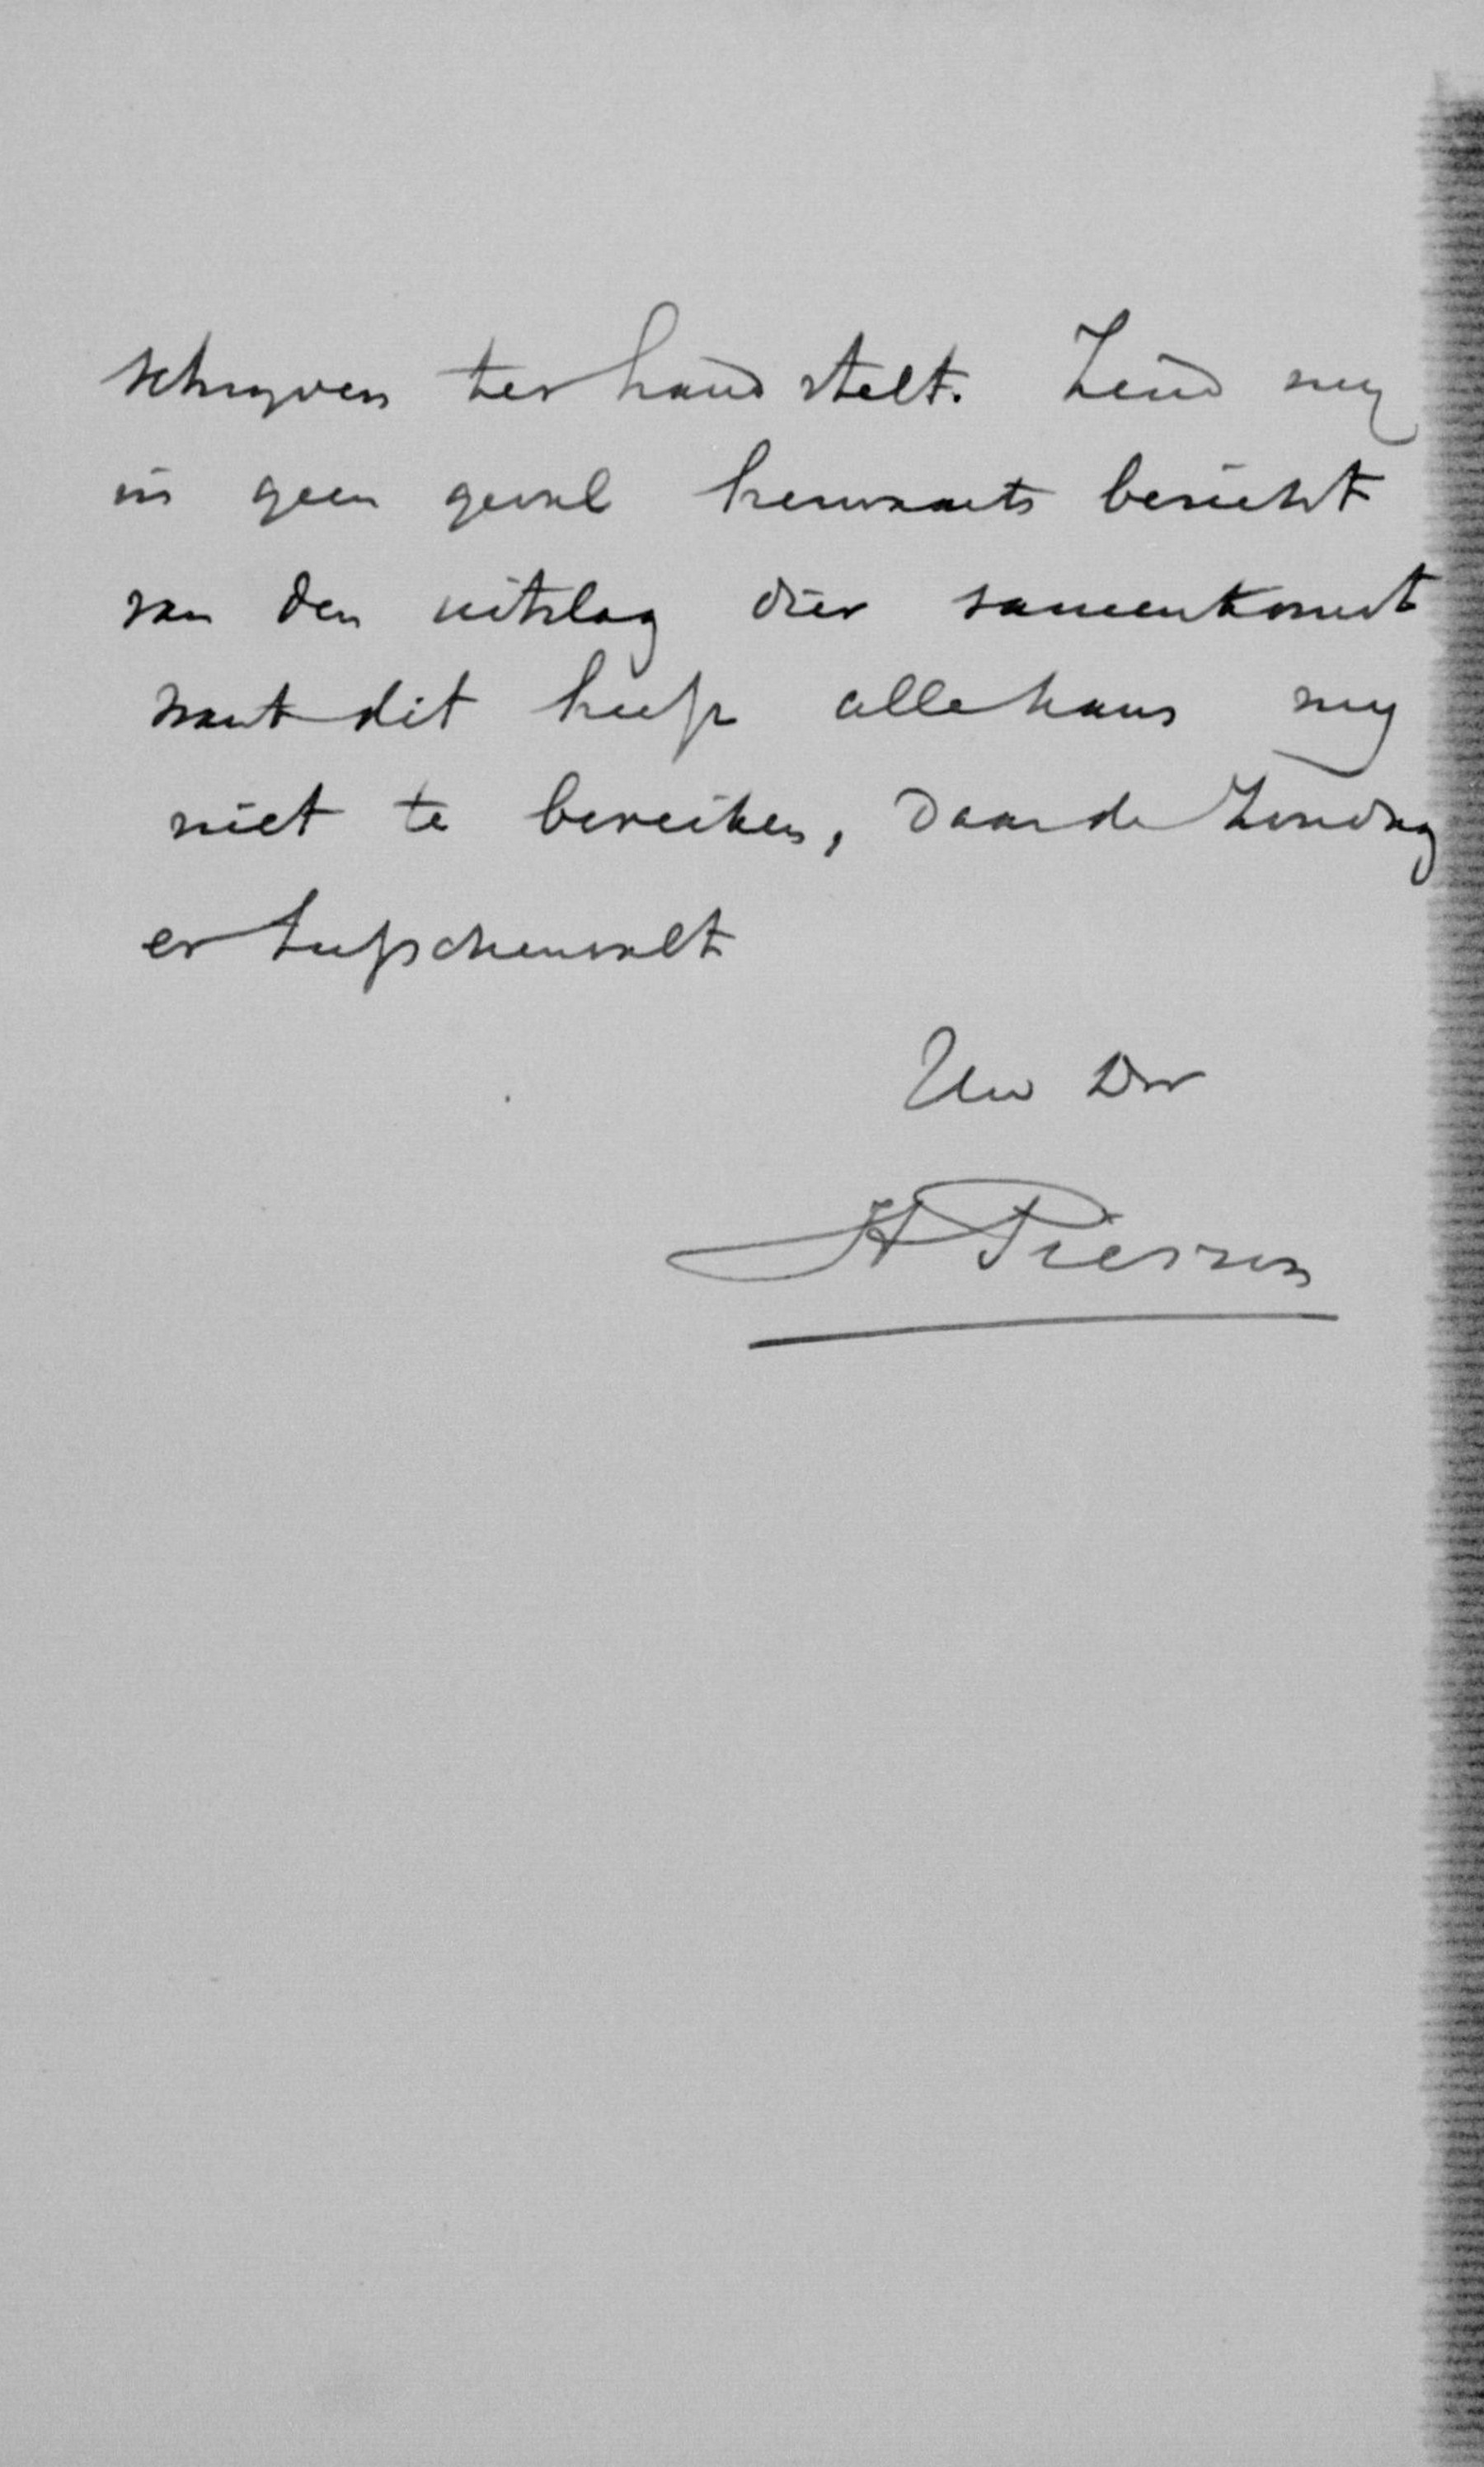 schryven ter hand stelt. Zend my
in geen geval herwaarts bericht
van den uitslag dier samenkomst
want dit heeft alle kans my
niet te bereiken, daar de Zondag
er tusschenvalt
Uw Dw
H Pierson